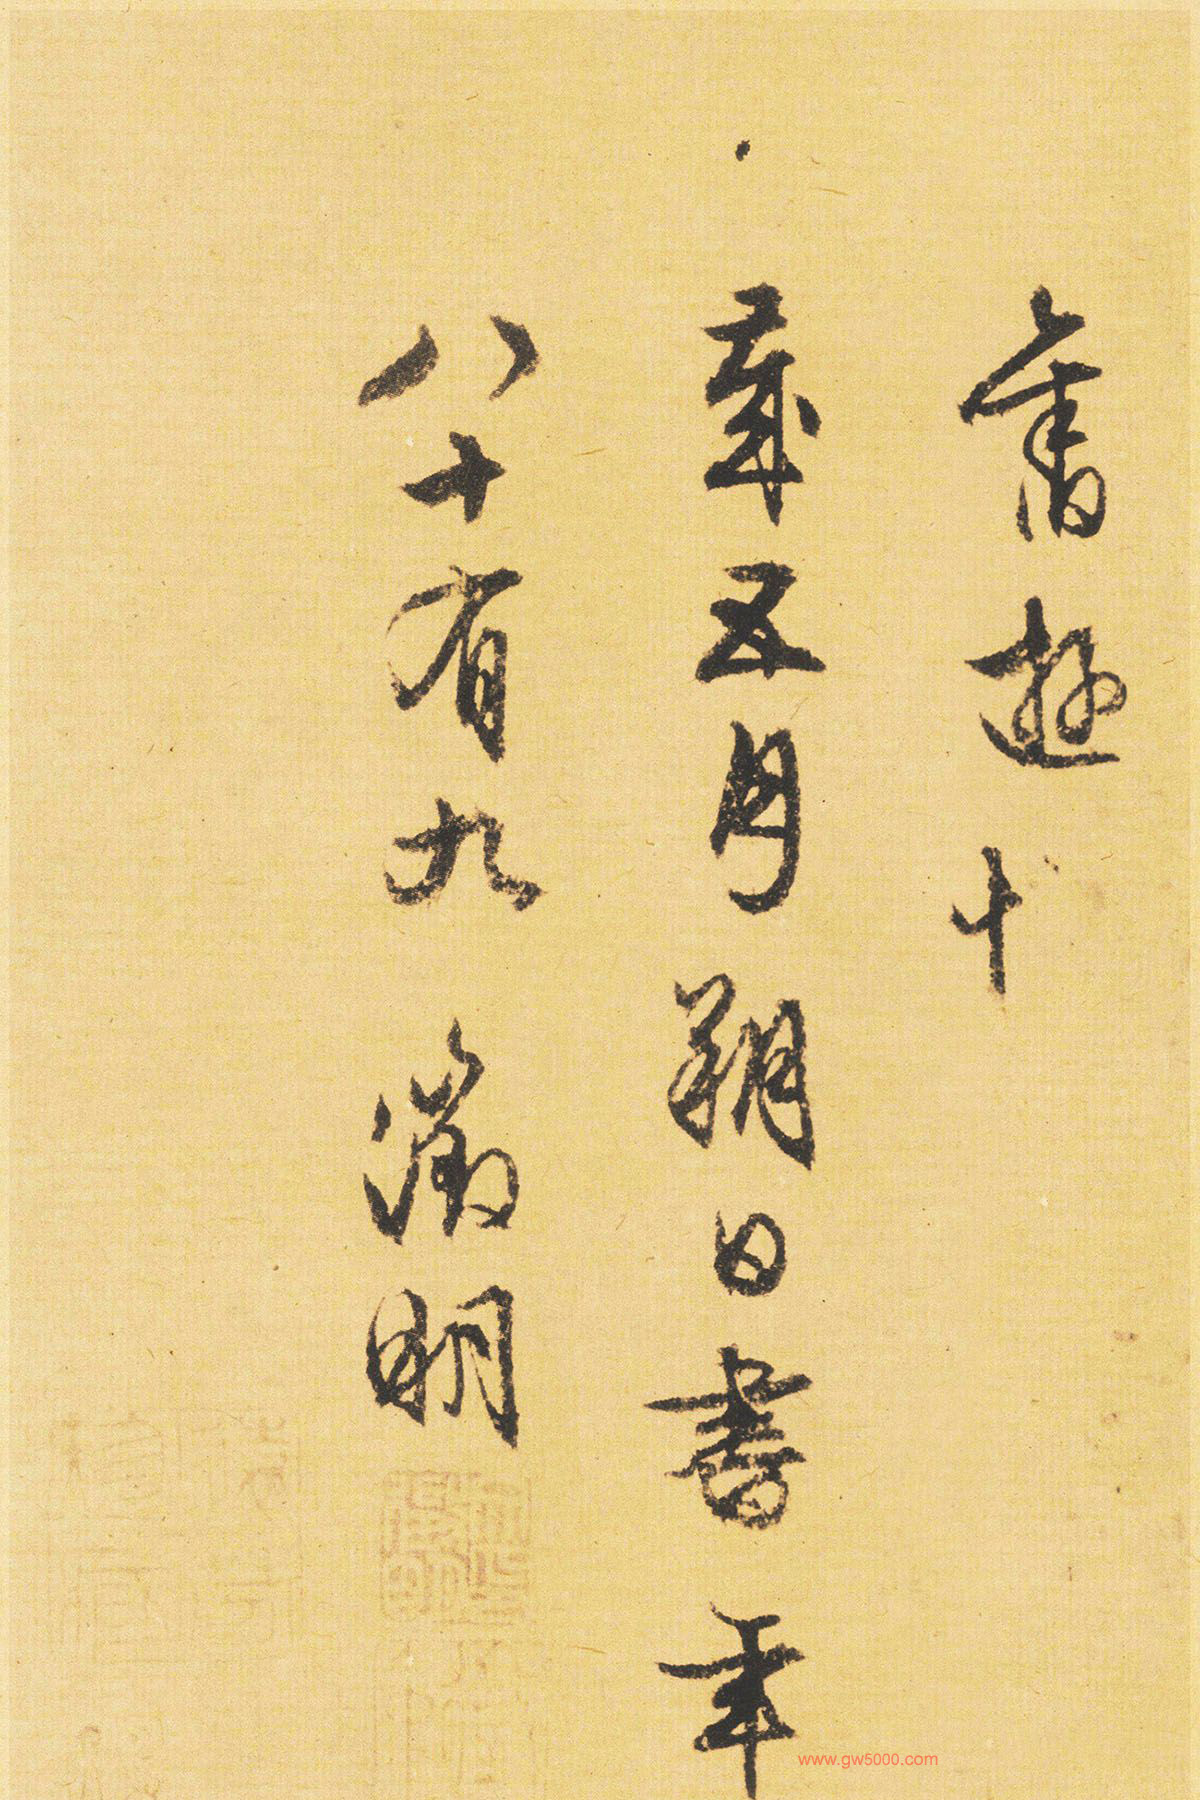 舊遊十
歲五月朔日書年
八十有九 徵明
www.gw5000.com